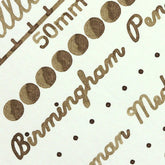 50mm
Birmingham Pen
man Ma